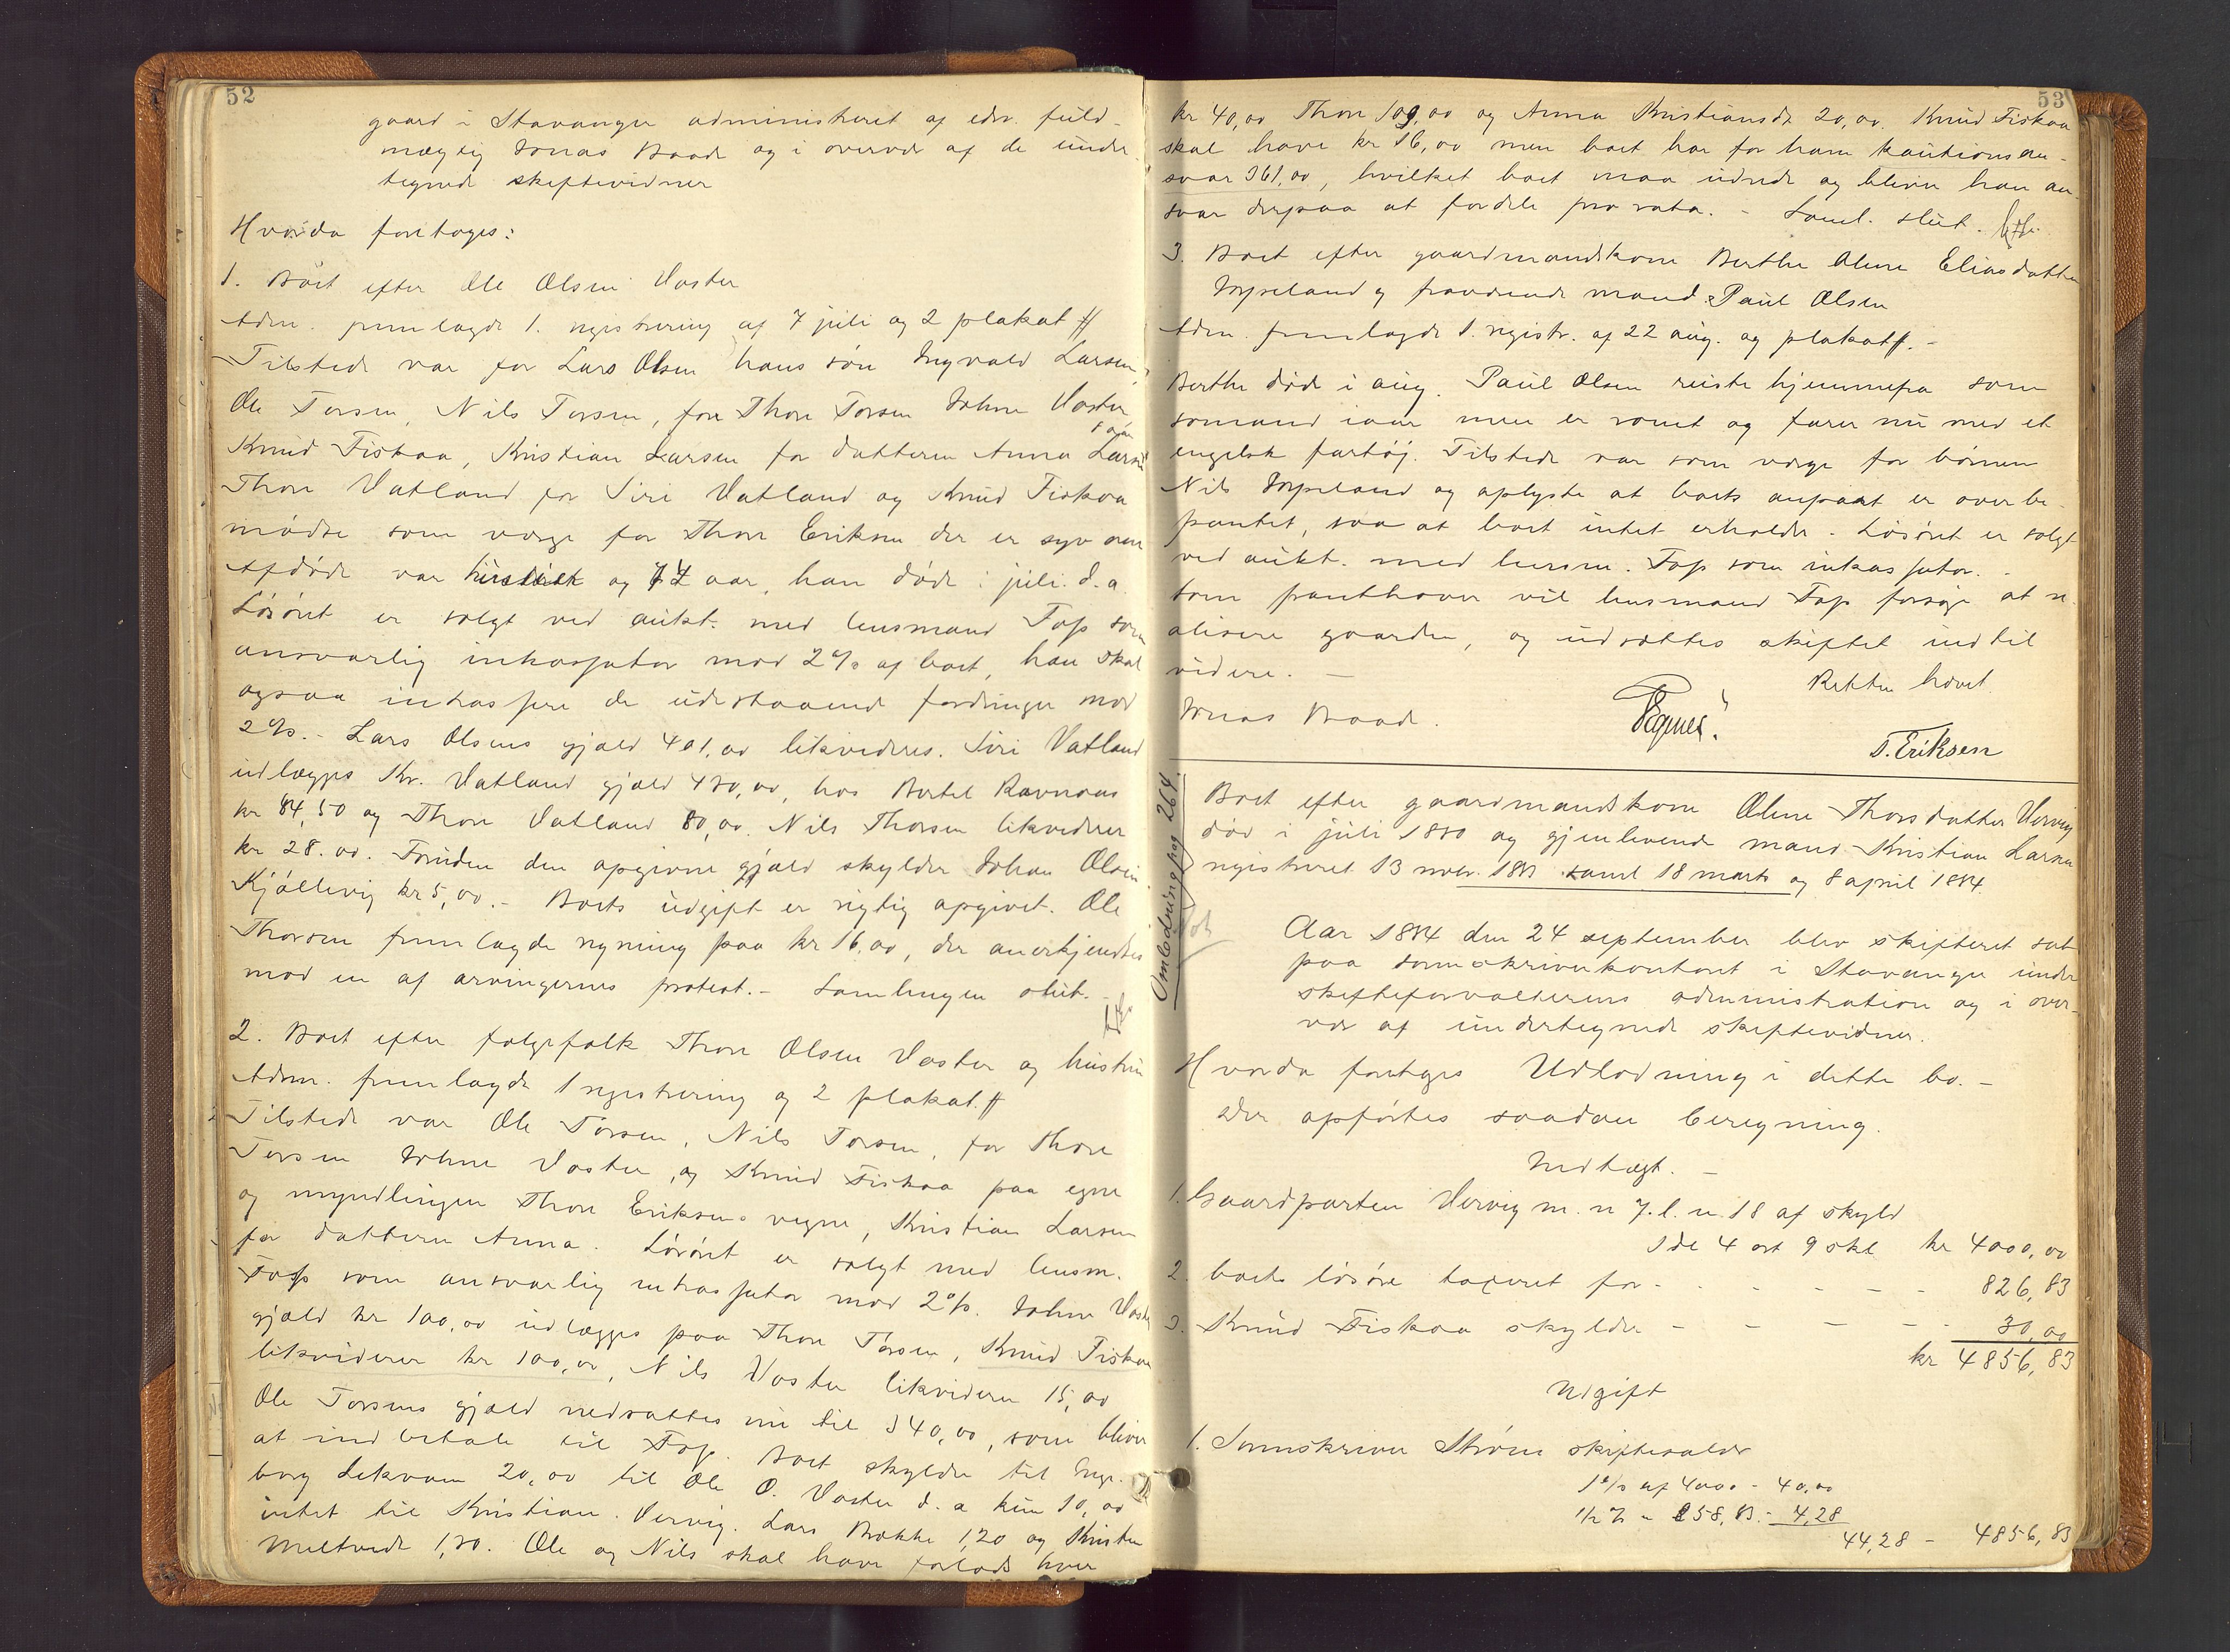 52
gaard i Stavanger administreret af edsv. fuld-
mægtig Jonas Braade og i overvær af de under-
tegnede skiftevidner
Hvorda foretoges:
1. Boet efter Ole Olsen Vaster
Adm. fremlagde 1. registrering af 7 juli og 2 plakat #
Tilstede var for Lars Olsen hans søn Ingvald Larsen,
Ole Torsen, Nils Torsen, for Thore Torsen Johne Vaster
Knud Fiskaa, Kristian Larsen for datteren Anna
Thore Vatland for Siri Vatland og Knud Fiskaa
mødte som værge for Thore Eriksen der er syv aar
Afdøde var og 74 aar, han døde i juli d. a.
Løsøret er solgt ved aukt. med lensmand Fop som
ansvarlig inkassator mod 2 % af boet, han skal
ogsaa inkassere de udestaaende fordringer mod
2 %. - Lars Olsens gjæld 401,00 likvideres. Siri Vatland
udlægges Kr. Vatland gjæld 420,00, hos Bertel Ravnaas
kr 84,50 og Thore Vatland 80,00. Nils Thorsen likviderer
kr 28.00. Foruden den opgivne gjæld skylder Johan Olsen
Kjøllevig kr 5,00. - Boets udgift er rigtig opgivet. Ole
Thorsen fremlagde regning paa kr 16,00, der anerkjendtes
mod en af arvingernes protest. - Samlingen slut. -
2. Boet efter følgefolk Thore Olsen Vaster og hustru
Adm. fremlagde 1 registrering og 2 plakat. #
Tilstede var Ole Torsen, Nils Torsen, for Thore
Torsen Johne Vaster, og Knud Fiskaa paa egne
og myndlingen Thore Eriksens vegne, Kristian Larsen
for datteren Anna. Løsøret er solgt med lensm.
Fop som ansvarlig inkassator mod 2 %. Johne Vaster
gjæld kr 100,00 udlægges paa Thore Torsen, Knud Fiskaa
likviderer kr 100,00, Nils Vaster likviderer 15,00
Ole Torsens gjæld nedsattes nu til 340,00, som bliver
at indbetale til Fop. Boet skylder til Inge-
borg Lekvam 20,00 til Ole O. Vaster d. a. kun 10,00
intet til Kristian Vervig. Lars Bakke 1,20 og Kristen
Meltvedt 1,20. Ole og Nils skal have forlods hver
53
kr 40,00 Thore 100,00 og Anna Kristiansdr 20,00. Knud Fiskaa
skal have kr 16,00 men boet har for ham kautionsan-
svar 361,00, hvilket boet maa udrede og bliver han an-
svar derpaa at fordele pro rata. - Saml. slut.
3. Boet efter gaardmandskone Berthe Oline Eliasdatter
og fraværende mand Paul Olsen
Adm. fremlagde 1. registr. af 22 aug. og plakat #. -
Berthe døde i aug. Paul Olsen reiste hjemmefra som
sømand iaar men er rømt og farer nu med et
engelsk fartøj. Tilstede var som værge for børnene
Nils og oplyste at boets anpart er overbe-
pantet, saa at boet intet erholder. Løsøret er solgt
ved aukt. med lensm. Fop som inkassator. -
Som panthaver vil lensmand Fop forsøge at re-
alisere gaarden, og udsættes skiftet indtil
videre. -
Retten hævet.
Jonas Braade.
T. Eriksen
Omlodning pag 264.
Boet efter gaardmandskone Oline Thorsdatter Vervig
død i juli 1880 og gjenlevende mand Kristian Larsen
registreret 13 novr. 1883 samt 18 marts og 8 april 1884.
Aar 1884 den 24 september blev skifteret sat
paa sorenskriverkontoret i Stavanger under
skifteforvalterens administration og i over-
vær af undertegnede skiftevidner.
Hvorda foretoges Udlodning i dette bo. -
Der opførtes saadan beregning.
Indtægt. -
1. Gaardparten Vervig m. n 7. l. n. 18 af skyld
1 dl 4 ort 9 skl kr 4000,00
2. boets løsøre taxeret for - - - - - 826,83
3. Knud Fiskaa skylder - - - - - 30,00
kr 4856,83
Udgift
1. Sorenskriver Strøms skiftesalær
1 % af 4000 - 40,00
1/2 % " 856,83 - 4,28
44,28 - 4856,83